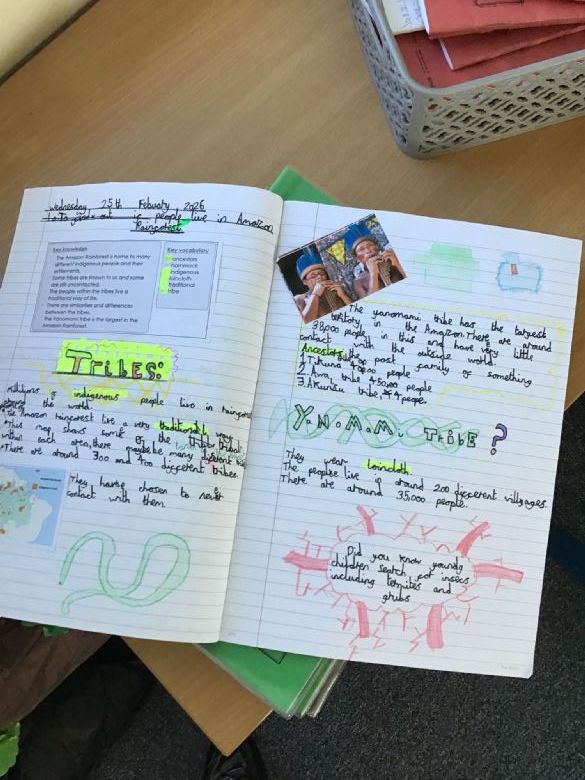 Wednesday, 25th Febuary, 2026
people live in Amazon
Raingorest
Key knowledge
The Amazon Rainforest is home to many
different indigenous people and their
settlements.
Some tribes are known to us and some
are still uncontacted.
The people within the tribes live a
traditional way of life.
There are similarities and differences
between the tribes.
The Yanomami tribe is the largest in the
Amazon Rainforest
Key vocabulary
ancestors
hammock
indigenous
loincloth
traditional
tribe
TRIBES:
Millions of indigenous people live in raingorest
around the world.
Amazon raingorest live a very traditional way
This map shows some of the tribes
within each area, there maybe many different
There are around 300 and 400 different tribes.
They have chosen to never
contact with them.
The yanomami tribe has the largest
history in the Amazon. There are around
38,000 people in this and have very little
contact with the outside world.
Ancestors: the past gamily of something
1. Tikuna people
2. tribe people
3. Akunsu tribe 4 people.
Y.N.M.M. TRIBE?
They wear loincloth
The peoples live in around 200 different villages.
There are around 35,000 people.
Did you know young
children search for insecs
including termites and
grubs